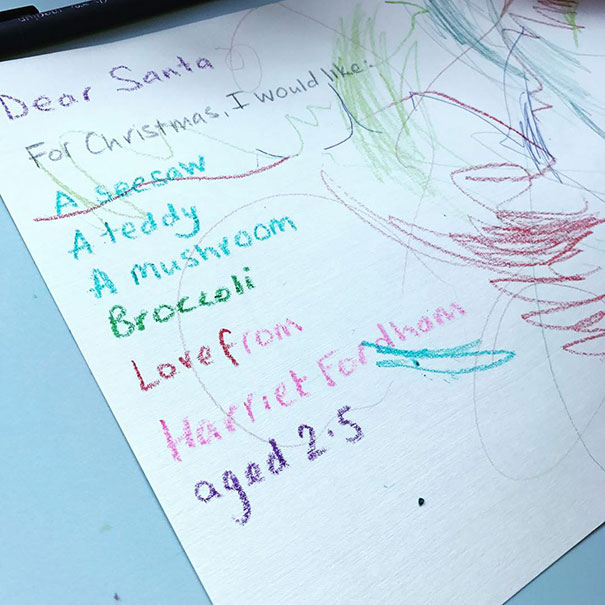 Dear Santa
For Christmas, I would like:
A seesaw
A teddy
A mushroom
Broccoli
Love from
Harriet Fordham
aged 2.5